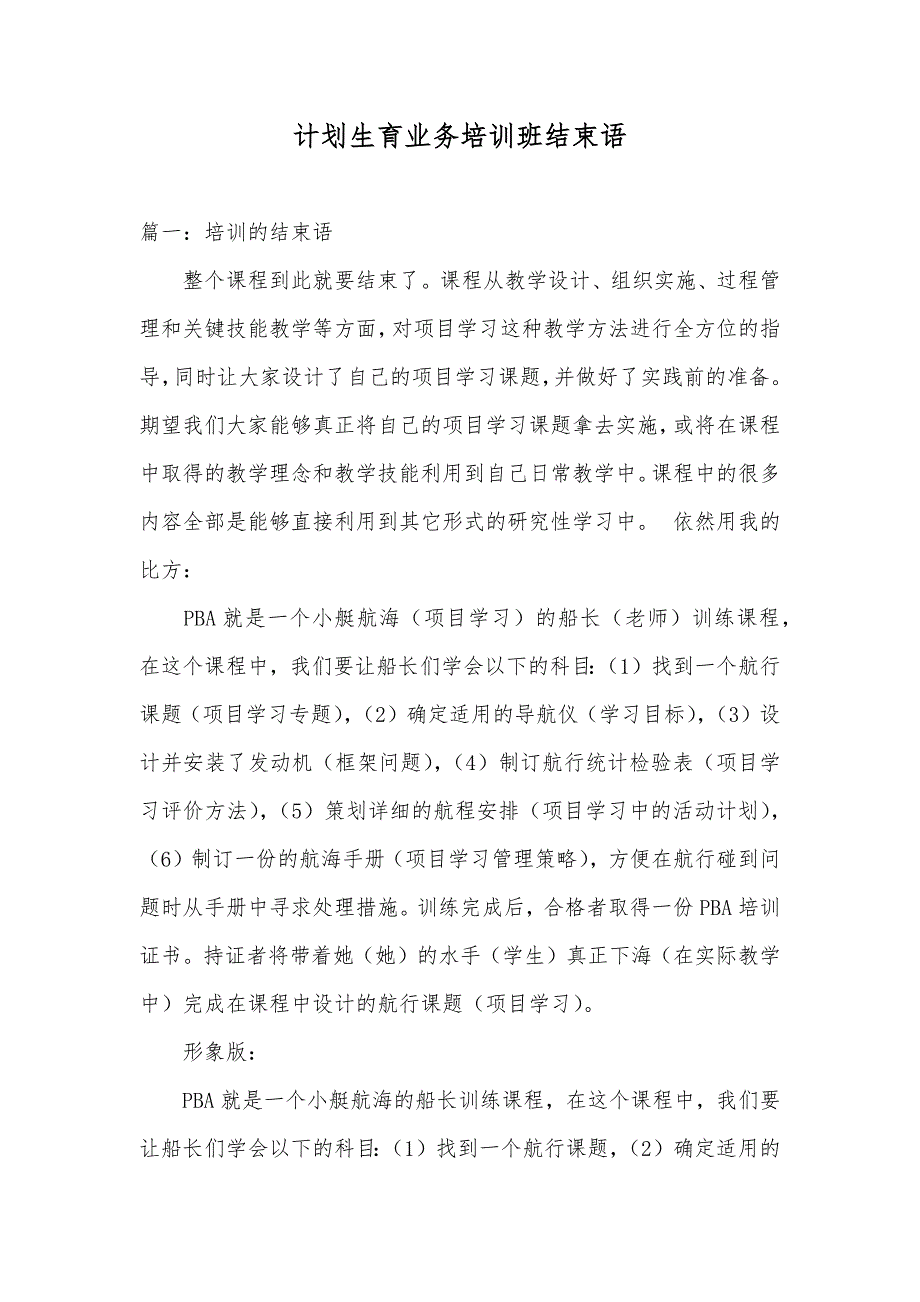 计划生育业务培训班结束语
篇一：培训的结束语
整个课程到此就要结束了。课程从教学设计、组织实施、过程管
理和关键技能教学等方面，对项目学习这种教学方法进行全方位的指
导，同时让大家设计了自己的项目学习课题，并做好了实践前的准备。
期望我们大家能够真正将自己的项目学习课题拿去实施，或将在课程
中取得的教学理念和教学技能利用到自己日常教学中。课程中的很多
内容全部是能够直接利用到其它形式的研究性学习中。 依然用我的
比方：
PBA 就是一个小艇航海（项目学习）的船长（老师）训练课程，
在这个课程中，我们要让船长们学会以下的科目：（1）找到一个航行
课题（项目学习专题），（2）确定适用的导航仪（学习目标），（3）设
计并安装了发动机（框架问题），（4）制订航行统计检验表（项目学
习评价方法），（5）策划详细的航程安排（项目学习中的活动计划），
（6）制订一份的航海手册（项目学习管理策略），方便在航行碰到问
题时从手册中寻求处理措施。训练完成后，合格者取得一份 PBA 培训
证书。持证者将带着她（她）的水手（学生）真正下海（在实际教学
中）完成在课程中设计的航行课题（项目学习）。
形象版：
PBA 就是一个小艇航海的船长训练课程，在这个课程中，我们要
让船长们学会以下的科目：（1）找到一个航行课题，（2）确定适用的